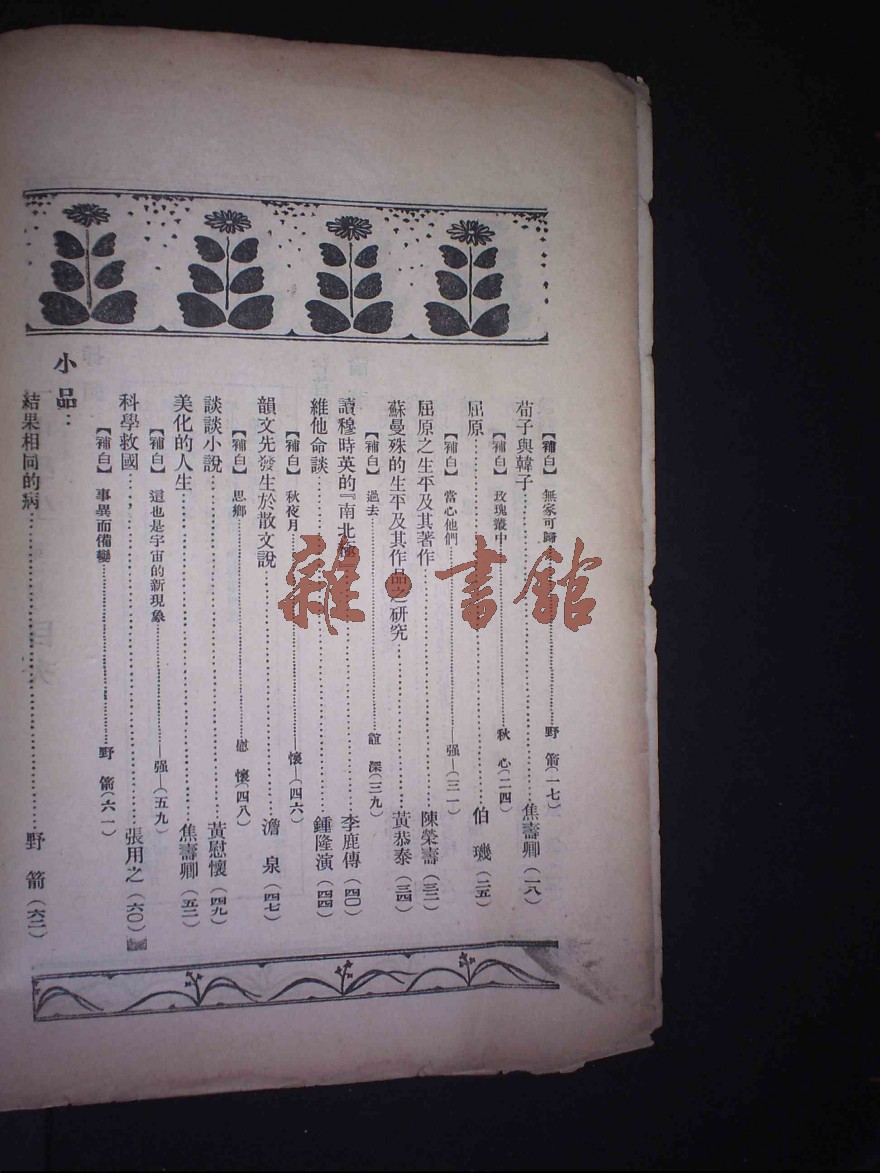 【補白】無家可歸……野箭(一七)
荀子與韓子……焦壽卿(一八)
【補白】玫瑰叢中……秋心(二四)
屈原……伯璣(二五)
【補白】當心他們……强(三一)
屈原之生平及其著作……陳榮壽(三二)
蘇曼殊的生平及其作品之研究……黃恭泰(三四)
【補白】過去……誼深(三九)
讀穆時英的『南北極……李鹿傳(四〇)
維他命談……鍾隆演(四四)
【補白】秋夜月……懷(四六)
韻文先發生於散文說……澹泉(四七)
【補白】思鄉……慰懷(四八)
談談小說……黃慰懷(四九)
美化的人生……焦壽卿(五二)
【補白】這也是宇宙的新現象……强(五九)
科學救國……張用之(六〇)
【補白】事異而備變……野箭(六一)
小品：
結果相同的病……野箭(六二)
雜·書館